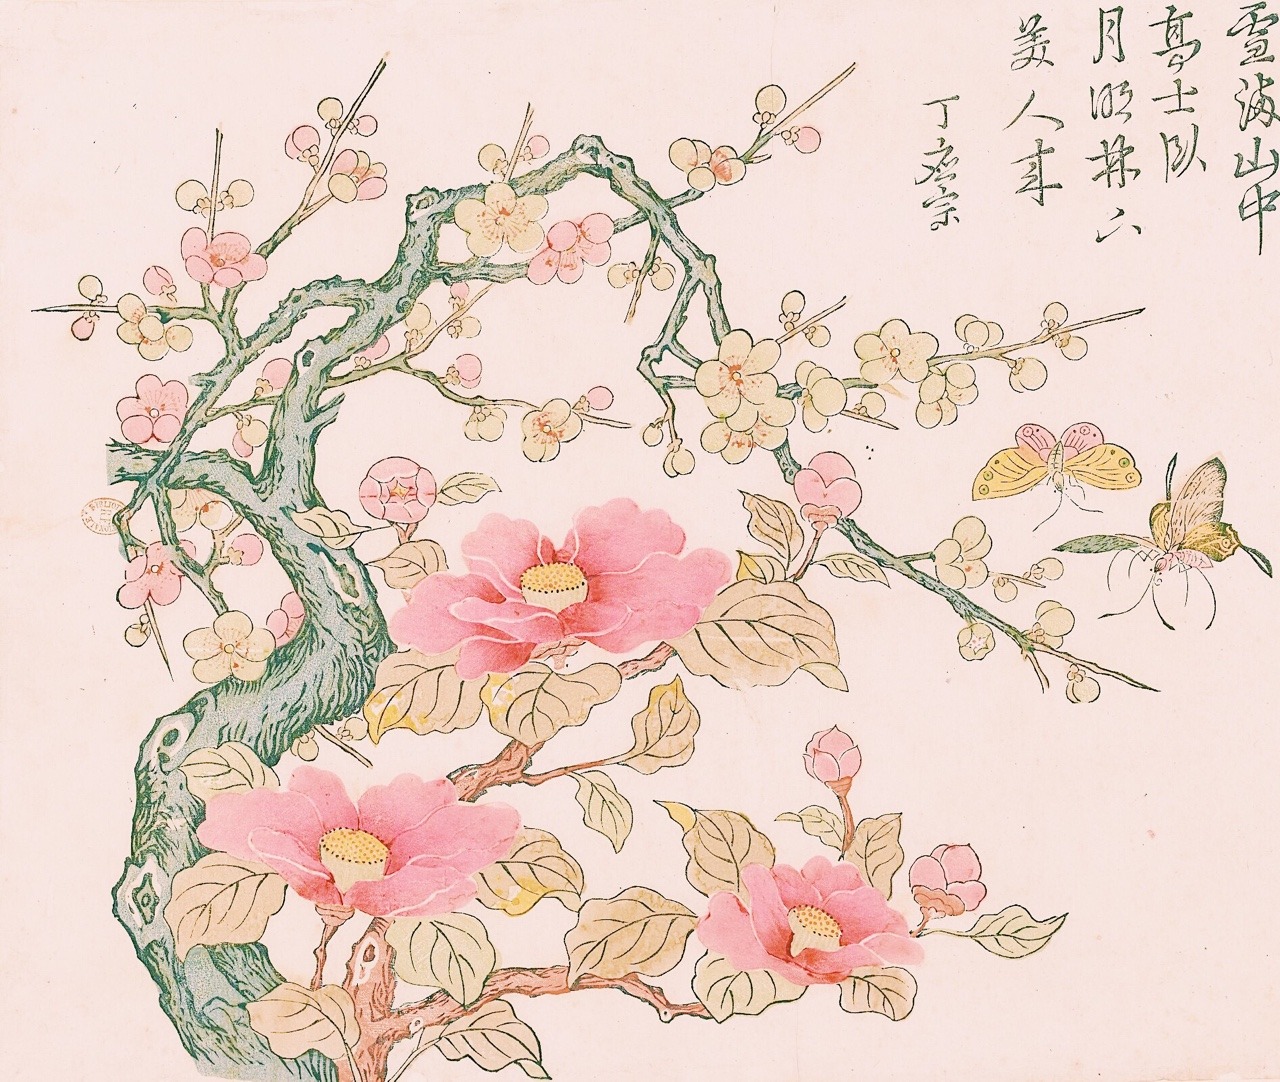 雪滿山中
高士臥
月明林下
美人来
丁應宗